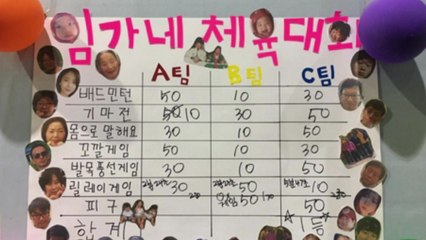 임가네 체육대회
A팀 B팀 C팀
배드민턴 50 10 30
기마전 50 10 30 50
몸으로 말해요 30 10 50
꼬깔게임 50 10 30
발목풍선게임 30 10 50
릴레이게임 30 50 10
피구 50
합계 1등